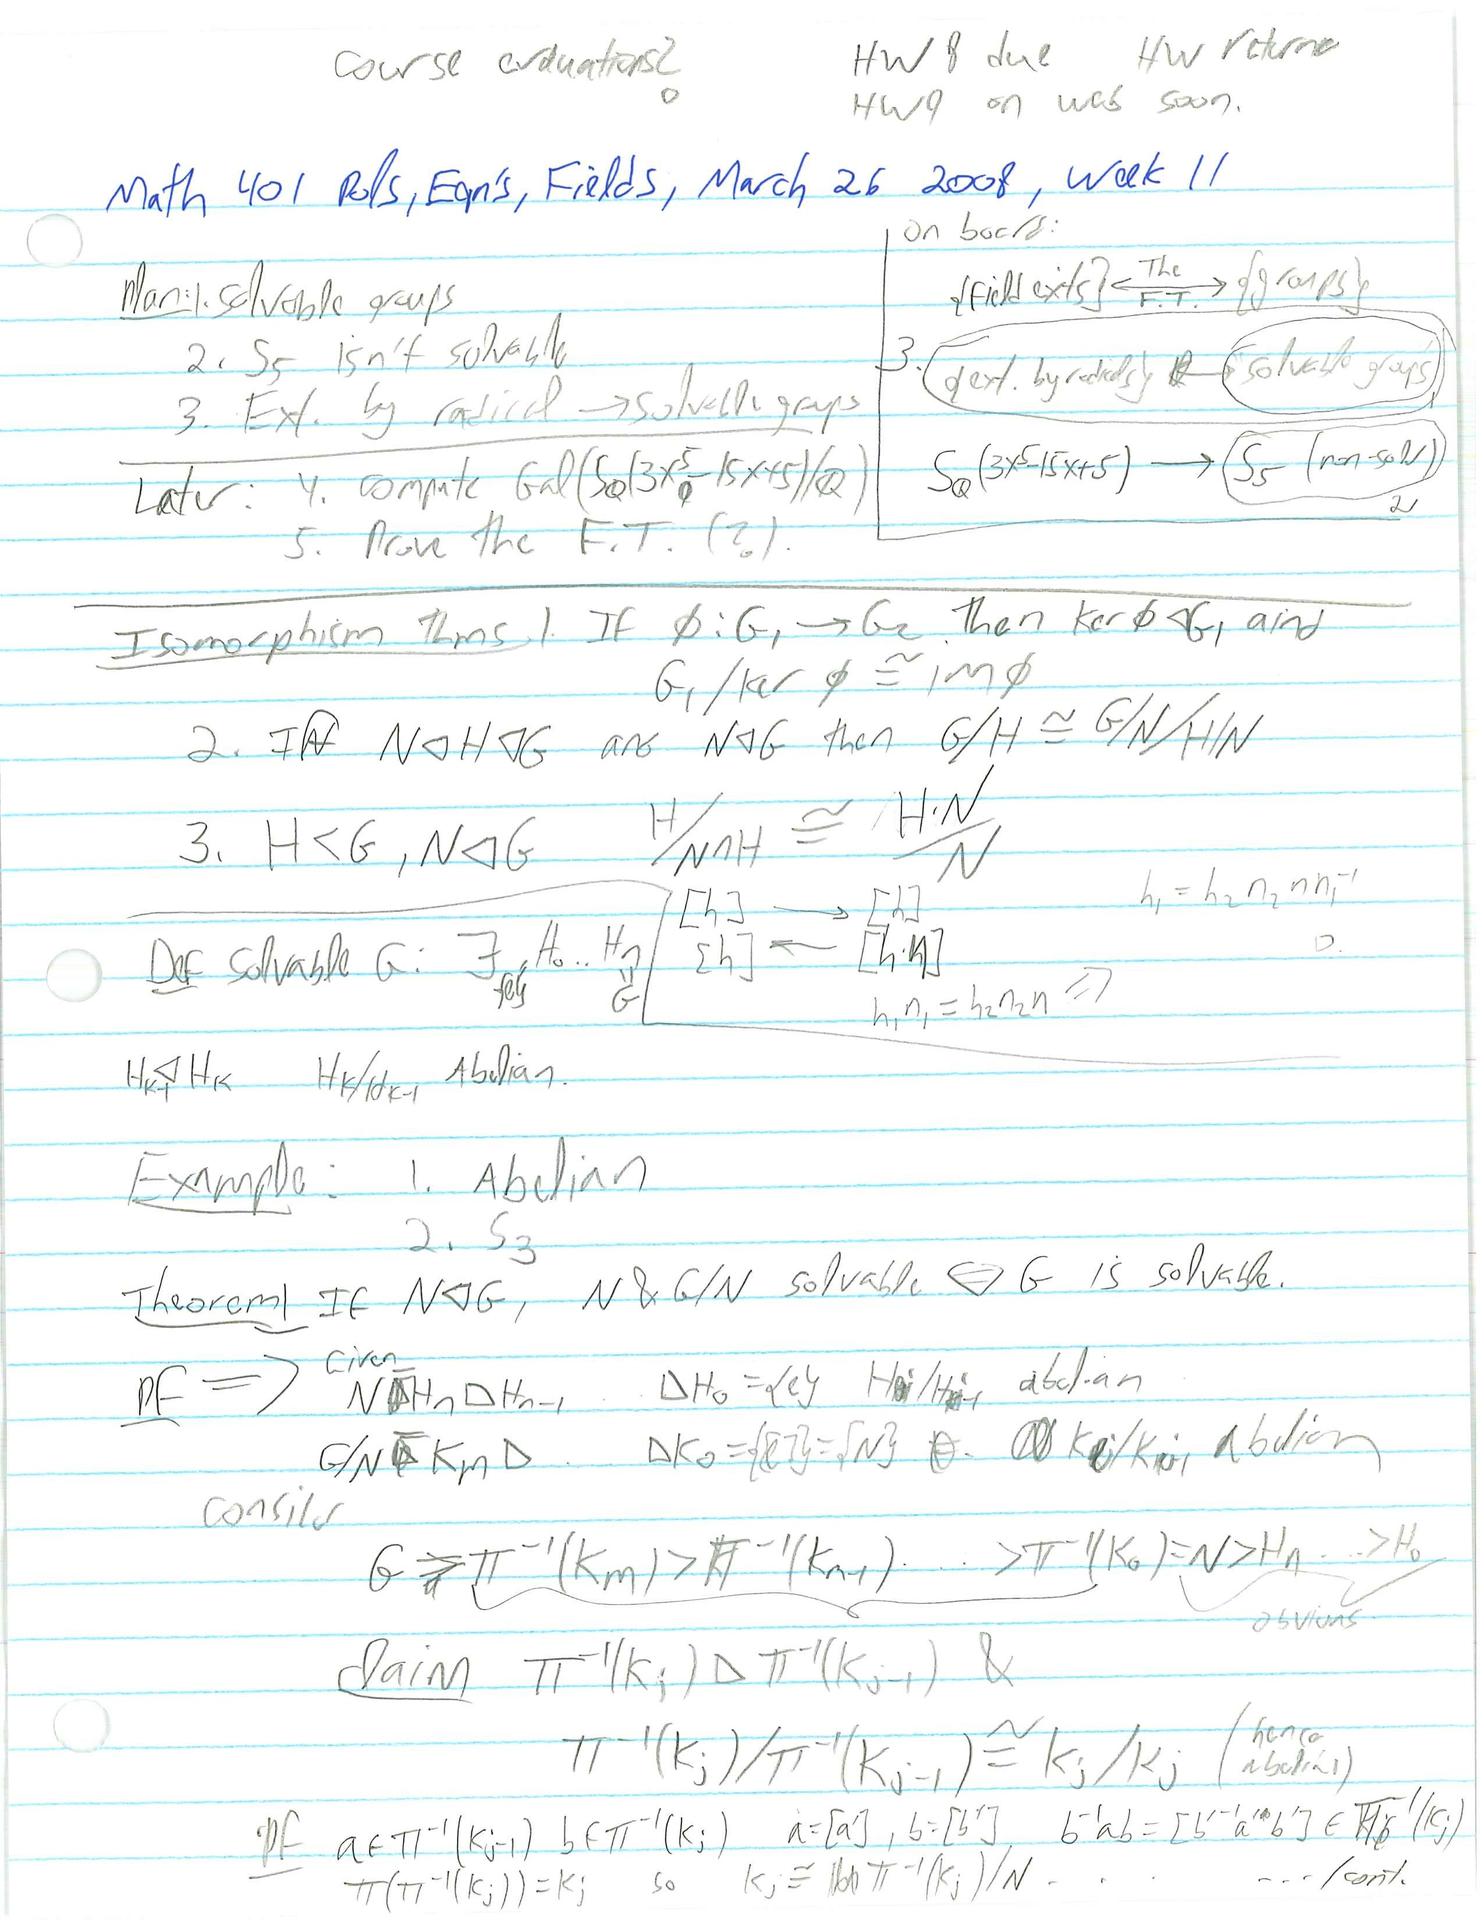 course evaluations? HW 8 due HW return
HW9 on web soon.
Math 401 Pols, Eqn's, Fields, March 26 2008, Week 11
Plan: 1. solvable groups
2. S₅ isn't solvable
3. Ext. by radical → solvable groups
Later: 4. compute Gal(S_Q(3x⁵-15x+5)/Q)
5. Prove the F.T. (?).
on board:
{field exts} ⟵The F.T.⟶ {groups}
3. {ext. by radicals} → {solvable groups}
S_Q(3x⁵-15x+5) ⟶ S₅ (non-solv)
2
Isomorphism thms 1. If φ: G₁ → G₂ then ker φ ◁ G₁ and
G₁/ker φ ≅ im φ
2. If N ◁ H ◁ G and N ◁ G then G/H ≅ G/N/H/N
3. H < G, N ◁ G H/N∩H ≅ H·N/N
[h] ⟶ [h]
[h] ⟵ [h·n]
h₁n₁ = h₂n₂n ⇒
h₁ = h₂n₂nn₁⁻¹
Def solvable G: ∃ {e}=H₀ .. Hₙ=G
H_{k-1} ◁ H_k H_k/H_{k-1} Abelian.
Example: 1. Abelian
2. S₃
Theorem 1 If N ◁ G, N & G/N solvable ⇔ G is solvable.
pf ⇒ Given N = Hₙ ▷ Hₙ₋₁ ▷ H₀ = {e} Hᵢ/Hᵢ₋₁ abelian
G/N = Kₘ ▷ .. ▷ K₀ = {[e]} = {N} Kᵢ/Kᵢ₋₁ abelian
consider
G = π⁻¹(Kₘ) > π⁻¹(Kₘ₋₁) .... > π⁻¹(K₀) = N > Hₙ ... > H₀
obvious
claim π⁻¹(Kⱼ) ▷ π⁻¹(Kⱼ₋₁) &
π⁻¹(Kⱼ)/π⁻¹(Kⱼ₋₁) ≅ Kⱼ/Kⱼ (hence abelian)
pf a∈π⁻¹(Kⱼ₋₁) b∈π⁻¹(Kⱼ) a=[a'], b=[b'] b⁻¹ab = [b'⁻¹a'b'] ∈ π⁻¹(Kⱼ)
π(π⁻¹(Kⱼ)) = Kⱼ so Kⱼ ≅ π⁻¹(Kⱼ)/N . . . ... /cont.